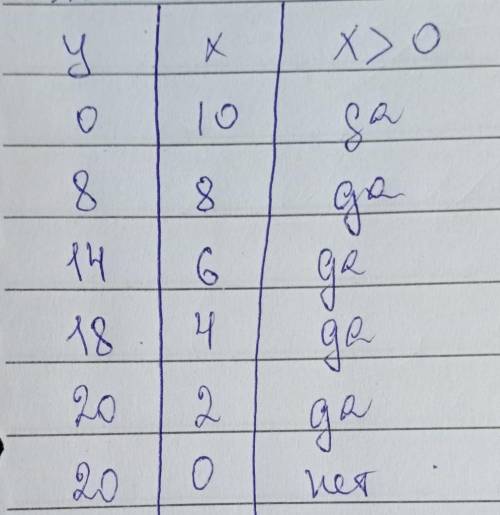 y x x > 0
0 10 да
8 8 да
14 6 да
18 4 да
20 2 да
20 0 нет